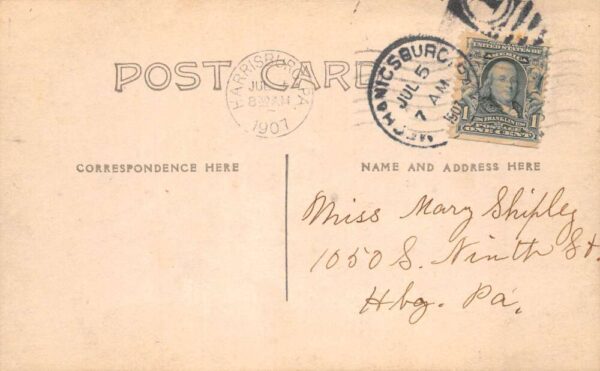 POST CARD
HARRISBURG, PA.
JUL
8 30 AM
1907
MECHANICSBURG, PA.
JUL 5
7 AM
1907
UNITED STATES OF
AMERICA
1 FRANKLIN 1
POSTAGE
ONE CENT
CORRESPONDENCE HERE
NAME AND ADDRESS HERE
Miss Mary Shipley
1050 S. Ninth St.
Hbg. Pa.